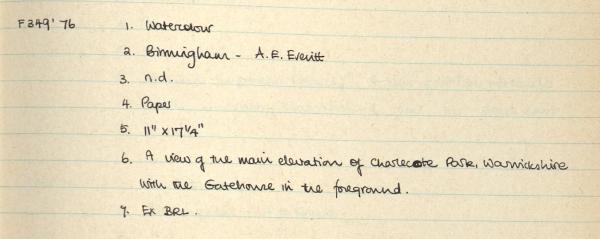 F349'76 1. Watercolour
2. Birmingham - A.E. Everitt
3. n.d.
4. Paper
5. 11" x 17 1/4"
6. A view of the main elevation of Charlecote Park, Warwickshire
with the Gatehouse in the foreground.
7. Ex BRL.